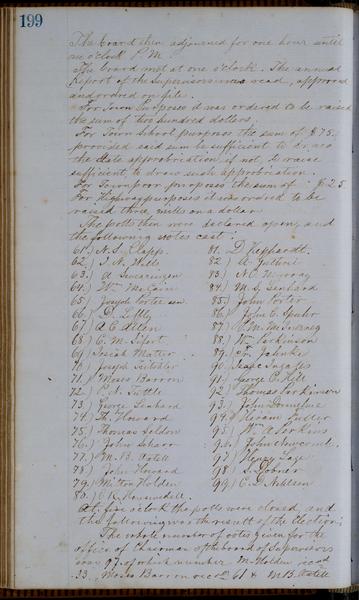 199
The board then adjourned for one hour until
one o'clock P.M.
The board met at one o'clock. The annual
Report of the Supervisors was read, approved
and ordered on file.
For Town Purposes it was ordered to be raised
the sum of two hundred dollars;
For Town school purposes the sum of $75.
provided said sum be sufficient to draw
the State approbriation if not, to raise
sufficient to draw such approbriation.
For Town poor purposes the sum of $25.
For Highway purposes it was ordered to be
raised three mills on a dollar
The polls then were declared open, and
the following votes cast.
61.) N. S. Clapp.
62.) I. N. Hills
63.) A Swearingen
64.) Wm McGain
65.) Joseph Porter sen.
66.) D.
67.) A. C. Allen
68.) C. M. Sifert
69.) Josiah Mather
70.) Joseph
71.) Moses Barron
72.) C. N. Tuttle
73.) George Lenhard
74.) H. Howard
75.) Thomas Seldon
76.) John Schaar
77.) M. B. Axtell
78.) John Howard
79.) Milton Holden
80.) C. R.
81. D Hephardt.
82.) A
83.) N. C. Murray
84.) M. S. Lenhard
85.) John Porter
86.) John C.
87.) V. M.
88.) Wm Parkinson
89.) Fr. Jahnke
90.) Isaac Ingalls
91.) George C. Hill
92.) Thomas Parkinson
93.) John Donneline
94.) Hiram Fuller
95.) Wm A. Perkins
96.) John Newcomb.
97.) Henry
98.) S. Dobner
99.) C. D.
At five o'clock the polls were closed, and
the following was the result of the Election;
The whole number of votes given for the
office of Chairman of the board of Supervisors
was 97. of which number M. Holden recd
33. Moses Barron recd 61 & M. B. Axtell